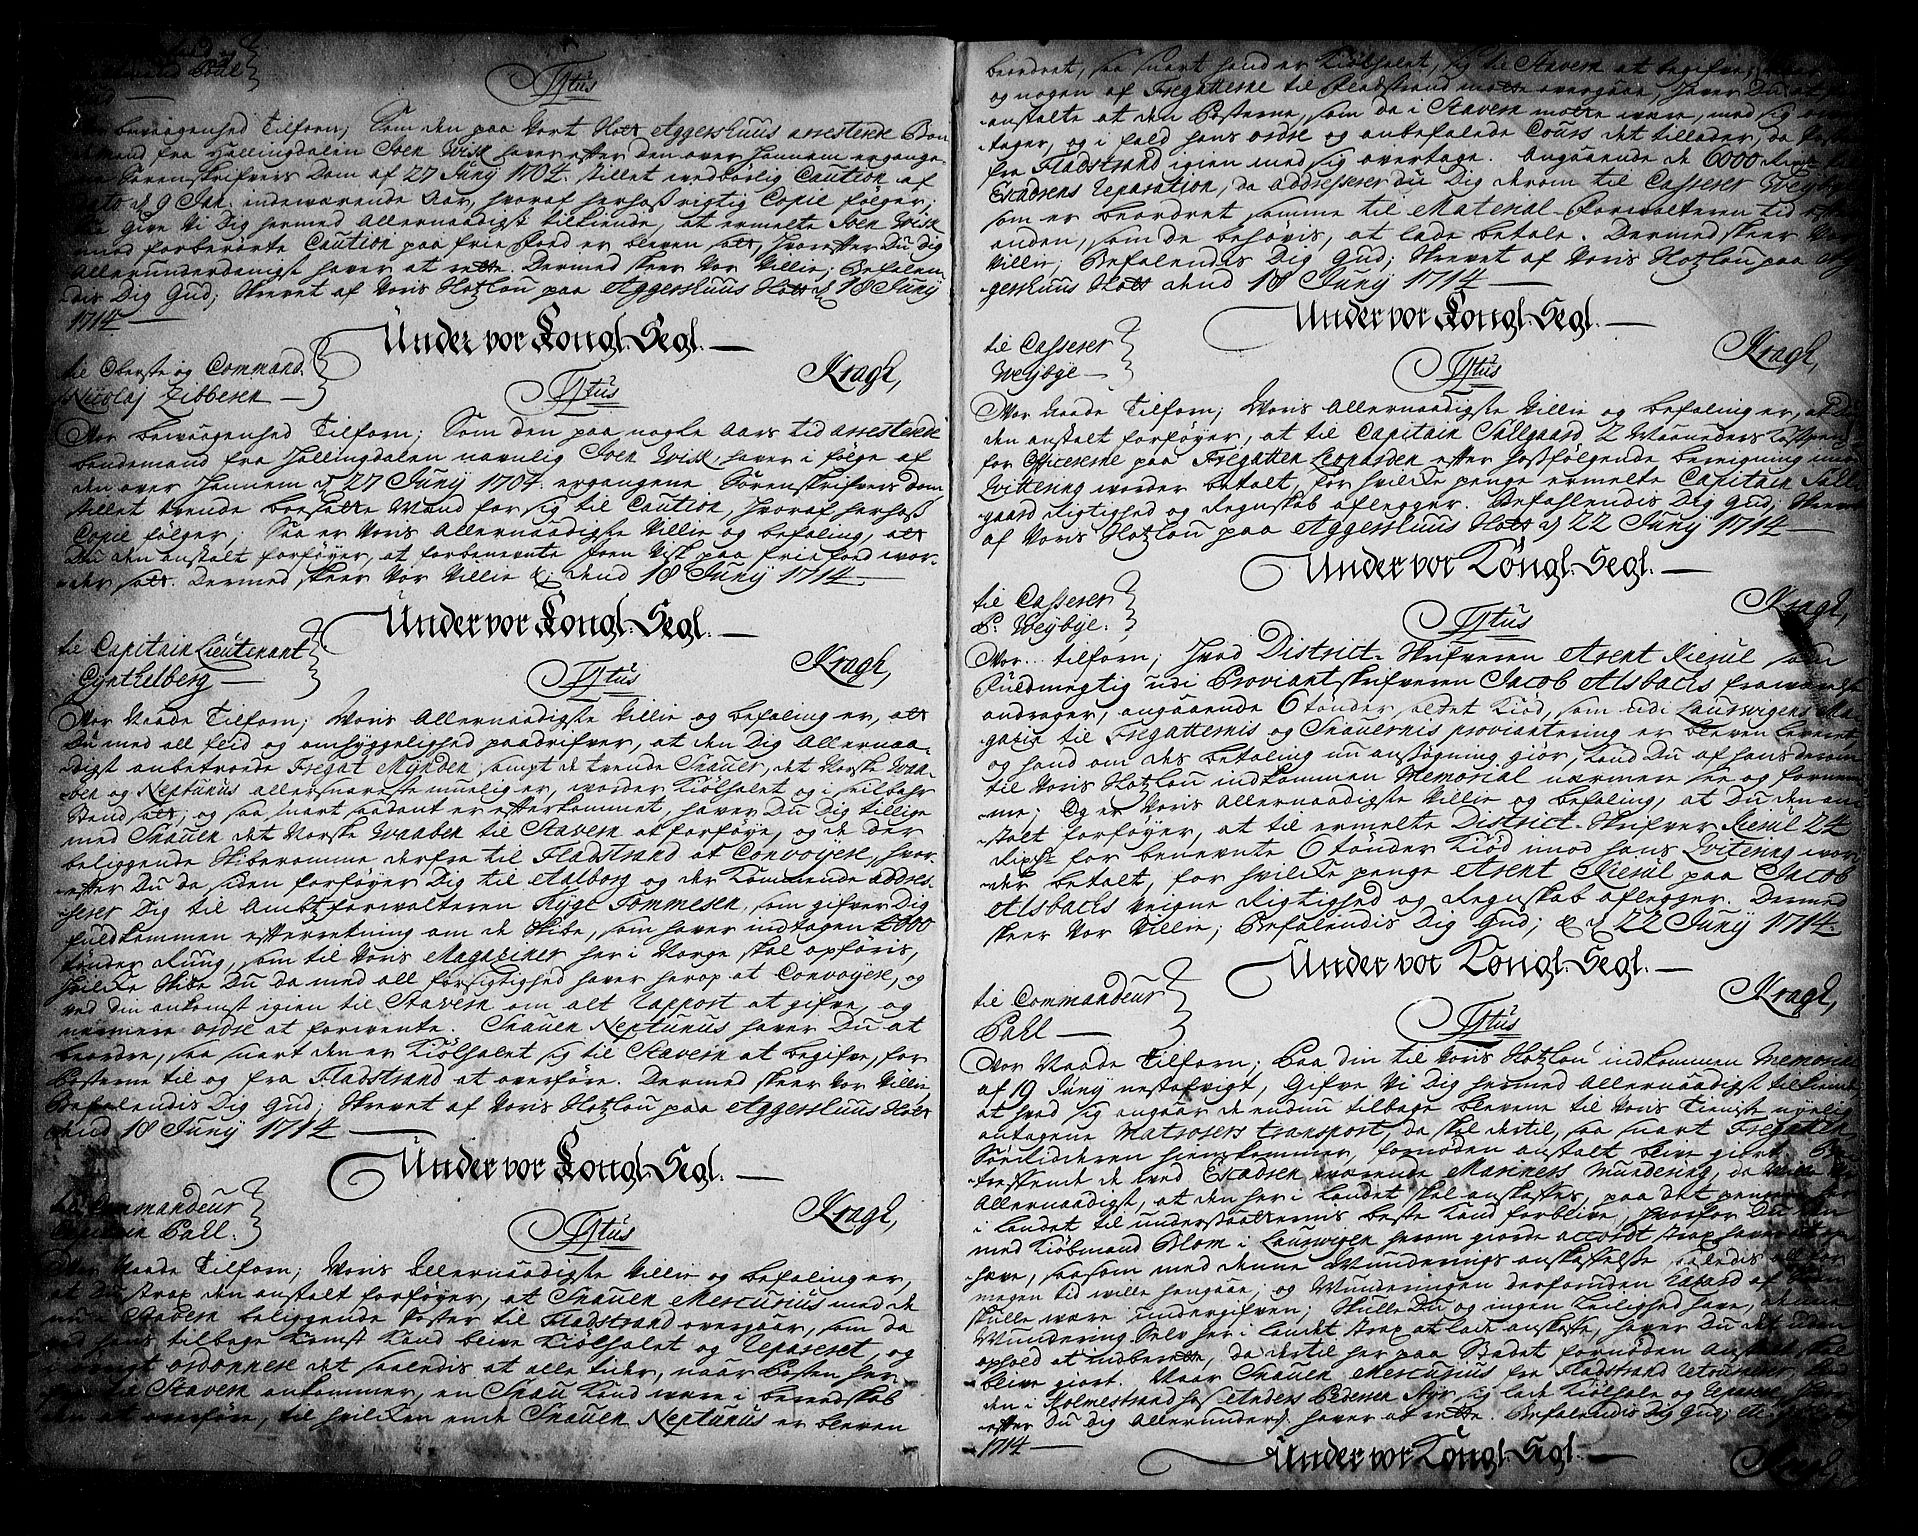 Tÿtus
bevaagenhed Tilforn; Som den paa Vort Hott Aggershuus arresterede Bon-
mand fra Hallingdalen Joen Wisk haver efter den over Hannem ergange-
Sorenskrifvers Dom af 27 Junÿ 1704. stillet nedborlig Caution af
9 Jan. indeværende Aar, hvoraf herhoß rigtig Copie følger;
give Vi Dig hermed Allernaadigst tilkiende, at ermelte Joen Wisk
mod forberørte Caution paa frie Foed er bleven satt, hvorefter Du Dig
Allerunderdanigst haver at rette. Dermed skeer Vor Villie; Befalen-
dis Dig Gud; Skrevet af Voris Slotzlou paa Aggershuus Slott d 18 Junÿ
1714
Under vor Kongl. Segl.
til Oberste og Command.
Nicolaj Zibbesen
Kragh,
Tÿtus
Vor bevaagenhed Tilforn; Som den paa nogle Aars tid arresterede
bondemand fra Hallingdalen navnlig Joen Wisk, haver i følge af
den over Hannem d 27 Junÿ 1704. ergangene Sorenskrifvers dom
stillet trende boesatte Mænd for sig til Caution, hvoraf herhoß
Copie følger; Saa er Voris Allernaadigste Villie og befaling, att
Du den anstalt forføyer, at forbenevnte Joen Wisk paa frie foed vor-
der satt. Dermed skeer Vor Villie &; dend 18 Junÿ 1714.
Under vor Kongl. Segl.
til Capitain Lieutenant
Cynthelberg
Kragh,
Tÿtus
Vor Naade Tilforn; Voris Allernaadigste Villie og befaling er, att
Du med all flid og omhyggelighed paadrifver, at den Dig Allernaa-
digst anbetroede Fregat Mynden, sampt de tvende Snauer, det Norske Vaa-
ben og Neptunus allersnareste muelig er, vorder Kiølhalet og i seilbahr
Stand satt; og saa snart sadant er efterkommet, haver Du Dig tillige
med Snauen det Norske Vaaben til Stavern at forføye, og de der
beliggende Skiberomme derfra til Fladstrand at Convoyere, hvor-
efter Du da siden forføyer Dig til Aalborg og der kommende addres-
serer Dig til Ambtforwalteren Kyge Tommesen, som gifver Dig
fuldkommen efterretning om de Skibe, som haver indtagen
tønder Rung, som til Voris Magaziner her i Norge skal opføris,
hvilcke Skibe Du da med all forsigtighed haver herop at Convoyere, og
ved din ankomst igien til Stavern om alt Rapport at gifve, og
nærmere ordre at forwente. Snauen Neptunus haver Du at
beordre, saa snart den er Kiølhalet sig til Stavern at begifve, for
Posterne til og fra Fladstrand at overføre. Dermed skeer Vor Villie,
Befalendis Dig Gud; Skrevet af Voris Slotzlou paa Aggershuus Slott
dend 18 Junÿ 1714
Under vor Kongl. Segl.
Commandeur
Capitain Pahl.
Kragh,
Tÿtus
Vor Naade Tilforn; Voris Allernaadigste Villie og befaling er,
at Du strax den anstalt forføyer, at Snauen Mercurius med de
nu i Stavern beliggende Poster til Fladstrand overgaar, som da
ved hans tilbage Komst Kand blive Kiølhalet og Repareret, og
ordonnere det saaledis at alle tider, naar Posten her
til Stavern ankommer, en Snau Kand være i beredskab
den at overføre, til hvilcken ende Snauen Neptunus er bleven
beordret, saa snart hand er Kiølhalet, sig til Stavern at begifve;
og nogen af Fregatterne til Fladstrand motte overgaae, haver Du at
anstalte at den Posterne, som da i Stavern motte være, med sig
tager, og i fald hans ordre og anbefalede Cours det tillader, da
fra Fladstrand igien med sig overtage. Angaaende de 6000
Escadrens Reparation, da addresserer du Dig derom til Casserer Weybye
som er beordret somme til Material-Forwalteren tid efter
anden, som de behøvis, at lade betale. Dermed skeer Vor
Villie; Befalendis Dig Gud; Skrevet af Voris Slotzlou paa Ag-
gershuus Slott dend 18 Junÿ 1714
Under vor Kongl. Segl.
til Casserer
Weybye
Kragh,
Tÿtus
Vor Naade Tilforn; Voris Allernaadigste Villie og befaling er, at Du
den anstalt forføyer, at til Capitain Sallgaard 2 Maaneders Kostpenge
for Officererne paa Fregatten Leoparden efter hosfølgende beregning mod
Qvittering worder betalt, for hvilcke penge ermelte Capitain Sall-
gaard Rigtighed og Regnskab aflegger. Befahlendis Dig Gud; Skrevet
af Voris Slotzlou paa Aggershuus Slott d 22 Junÿ 1714
Under vor Kongl. Segl.
til Casserer
P. Weybye.
Kragh,
Tÿtus
Vor... tilforn; Hvad District-Skrifveren Arent Kiesul som
Fuldmegtig udi Proviantskrifveren Jacob Alsbachs frawærelse
andrager, angaaende 6 tønder saltet Kiød, som udi Laurwigens Ma-
gazin til Fregatternis og Snauernis proviantering er bleven leveret,
og hand om des betaling nu ansøgning giør, Kand Du af hans derom
til Voris Slotzlou indkommen Memorial nærmere see og fornem-
me; Og er Voris Allernaadigste Villie og befaling, at Du den an-
stalt forføyer, at til ermelte District-Skrifver Kiesul 24
Rixdr for benevnte 6 tønder Kiød imod hans Qvittering vor-
der betalt, for hvilcke penge Arent Kiesul paa Jacob
Alsbachs Veigne Rigtighed og Regnskab aflegger. Dermed
skeer Vor Villie; Befalendis Dig Gud; & d 22 Junÿ 1714.
Under vor Kongl. Segl.
til Commandeur
Pahl
Kragh,
Tÿtus
Vor Naade Tilforn; Paa din til Voris Slotzlou indkommen Memorial
af 19 Junÿ nestafvigt, Gifve Vi Dig hermed Allernaadigst tilkiende,
at hvad sig angaar de endnu tilbage blevene til Voris Tieneste nyelig
antagene Matrosers transport, da skal dertil, saa snart Fregatten
Sørridderen hiemkommer, fornøden anstalt blive giort.
treskende de ved Escadren værende Mariners Mundering, da ville Vi
Allernaadigst, at den her i Landet skal anskaffes, paa det pengene
i Landet til undersaatternis beste Kand forblive, hvorfor Du
med Kiøbmand Blom i Laurwigen herom giorde accordt strax haver at op-
hæve, saasom med denne Munderings anskaffelse saaledis all for
megen tid wille hengaae, og Munderingen derforuden Repard af
skulle være undergifven; Skulle Du og ingen leilighed have, denne
Mundering selv her i Landet strax at lade anskaffe, haver Du det uden
ophold at indberette, da dertil her paa Stedet fornøden Anstalt skal
blive giort. Naar Snauen Mercurius fra Fladstrand
den i Holmestrand hos Anders Pedersen Nyr sig lade Kiølhale og
efter Du Dig Allerunderd. haver at rette. Befalendis Dig Gud;
1714
Under vor Kongl. Segl.
Kragh,